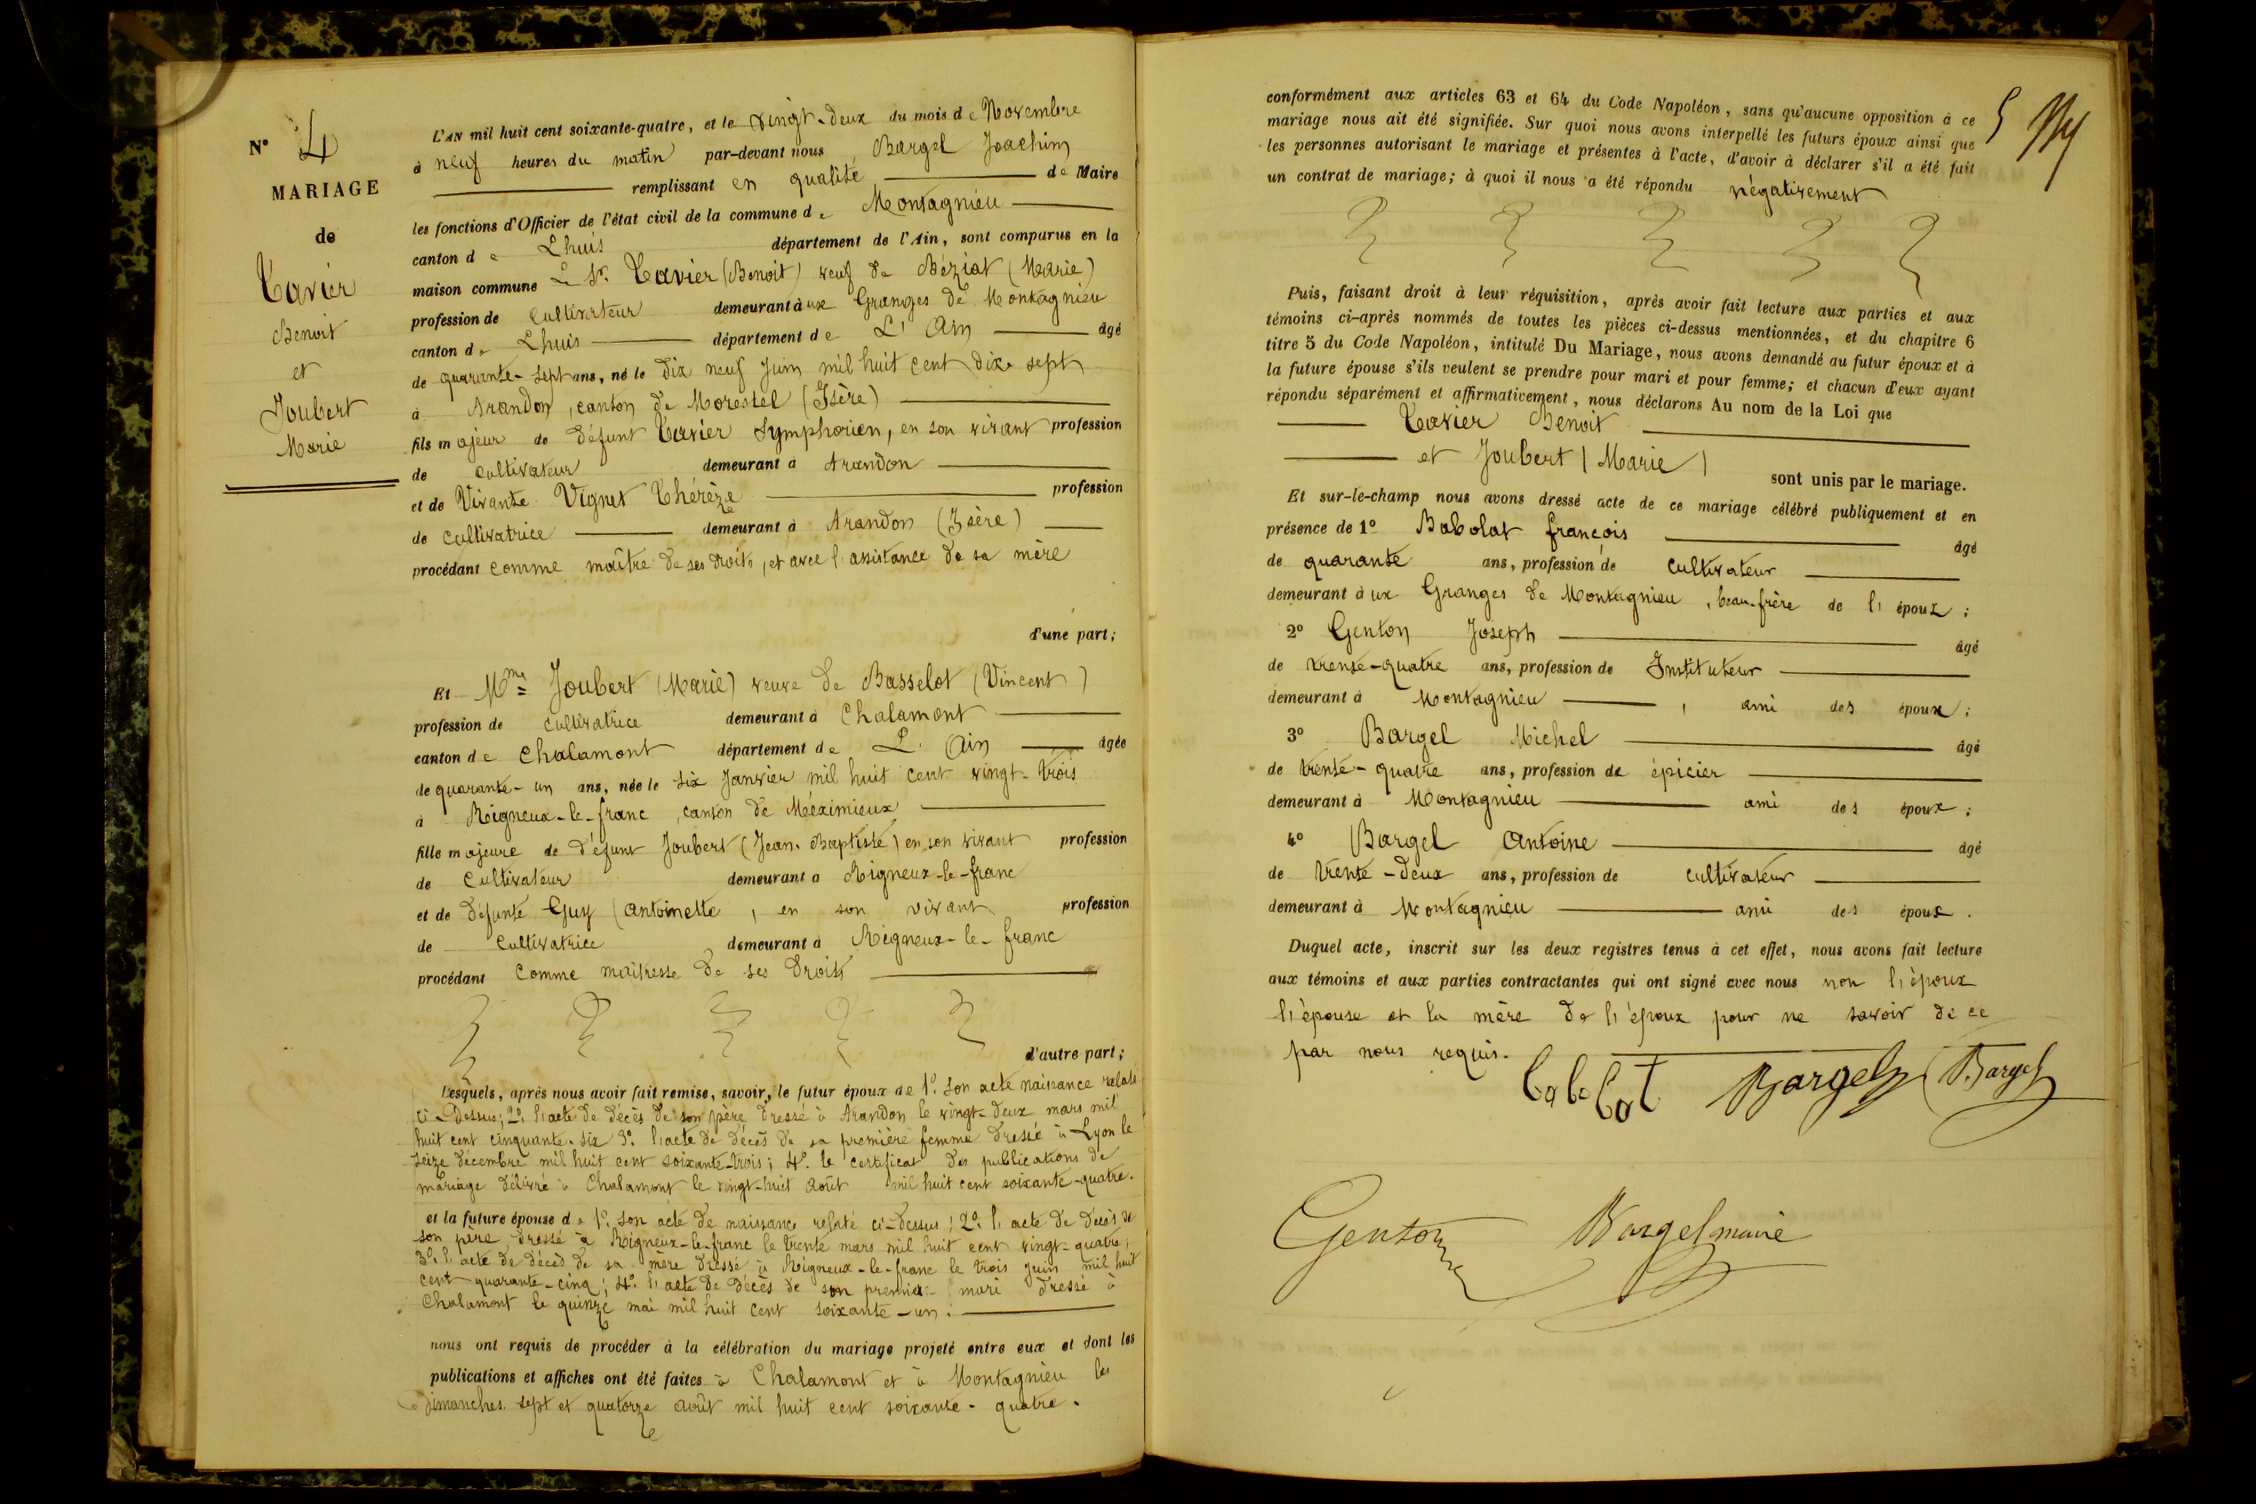 N° 4
MARIAGE
de
Tavier
Benoit
et
Joubert
Marie
L'AN mil huit cent soixante-quatre, et le vingt-deux du mois de Novembre
à neuf heures du matin par-devant nous Bargel Joachim
remplissant en qualité de Maire
les fonctions d'Officier de l'état civil de la commune de Montagnieu
canton de Lhuis département de l'Ain, sont comparus en la
maison commune Le Sr. Tavier (Benoit) veuf de Béziat (Marie)
profession de cultivateur demeurant à ux Granges de Montagnieu
canton de Lhuis département de L'Ain âgé
de quarante-sept ans, né le dix neuf Juin mil huit cent dix-sept
à Arandon, canton de Morestel (Isère)
fils majeur de défunt Tavier Symphorien, en son vivant profession
de cultivateur demeurant à Arandon
et de Vivante Vignet Thérèze profession
de cultivatrice demeurant à Arandon (Isère)
procédant comme maître de ses droits, et avec l'assistance de sa mère
d'une part;
Et Mme Joubert (Marie) veuve de Basselot (Vincent)
profession de cultivatrice demeurant à Chalamont
canton de Chalamont département de L'Ain âgée
de quarante-un ans, née le six Janvier mil huit cent vingt-trois
à Rigneux-le-franc, canton de Méximieux
fille majeure de défunt Joubert (Jean-Baptiste) en son vivant profession
de Cultivateur demeurant à Rigneux-le-franc
et de défunte Guy (Antoinette, en son vivant profession
de cultivatrice demeurant à Rigneux-le-franc
procédant comme maîtresse de ses droits
d'autre part;
Lesquels, après nous avoir fait remise, savoir, le futur époux de 1° son acte naissance relaté
ci-Dessus; 2° l'acte de décès de son père dressé à Arandon le vingt-deux mars mil
huit cent cinquante-six 3° l'acte de décès de sa première femme dressé à Lyon le
seize décembre mil huit cent soixante-trois; 4° le certificat des publications de
mariage délivré à Chalamont le vingt-huit août mil huit cent soixante-quatre.
et la future épouse de 1° son acte de naissance relaté ci-dessus; 2° l'acte de décès de
son père dressé à Rigneux-le-franc le trente mars mil huit cent vingt-quatre;
3° l'acte de décès de sa mère dressé à Rigneux-le-franc le trois Juin mil huit
cent quarante-cinq; 4° l'acte de décès de son premier mari dressé à
Chalamont le quinze mai mil huit cent soixante-un.
nous ont requis de procéder à la célébration du mariage projeté entre eux et dont les
publications et affiches ont été faites à Chalamont et à Montagnieu les
dimanches sept et quatorze août mil huit cent soixante-quatre.
5
conformément aux articles 63 et 64 du Code Napoléon, sans qu'aucune opposition à ce
mariage nous ait été signifiée. Sur quoi nous avons interpellé les futurs époux ainsi que
les personnes autorisant le mariage et présentes à l'acte, d'avoir à déclarer s'il a été fait
un contrat de mariage; à quoi il nous a été répondu négativement
Puis, faisant droit à leur réquisition, après avoir fait lecture aux parties et aux
témoins ci-après nommés de toutes les pièces ci-dessus mentionnées, et du chapitre 6
titre 5 du Code Napoléon, intitulé Du Mariage, nous avons demandé au futur époux et à
la future épouse s'ils veulent se prendre pour mari et pour femme; et chacun d'eux ayant
répondu séparément et affirmativement, nous déclarons Au nom de la Loi que
Tavier Benoit
et Joubert (Marie)
sont unis par le mariage.
Et sur-le-champ nous avons dressé acte de ce mariage célébré publiquement et en
présence de 1° Babolat françois âgé
de quarante ans, profession de cultivateur
demeurant à ux Granges de Montagnieu, beau-frère de l'époux;
2° Genton Joseph âgé
de trente-quatre ans, profession de Instituteur
demeurant à Montagnieu, ami des époux;
3° Bargel Michel âgé
de trente-quatre ans, profession de épicier
demeurant à Montagnieu ami des époux;
4° Bargel Antoine âgé
de trente-deux ans, profession de cultivateur
demeurant à Montagnieu ami des époux.
Duquel acte, inscrit sur les deux registres tenus à cet effet, nous avons fait lecture
aux témoins et aux parties contractantes qui ont signé avec nous non l'époux
l'épouse et la mère de l'époux pour ne savoir de ce
par nous requis.
babolat Bargel Bargel
Genton Bargel maire